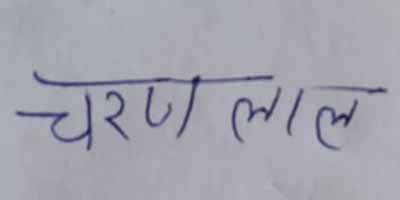 चरण लाल